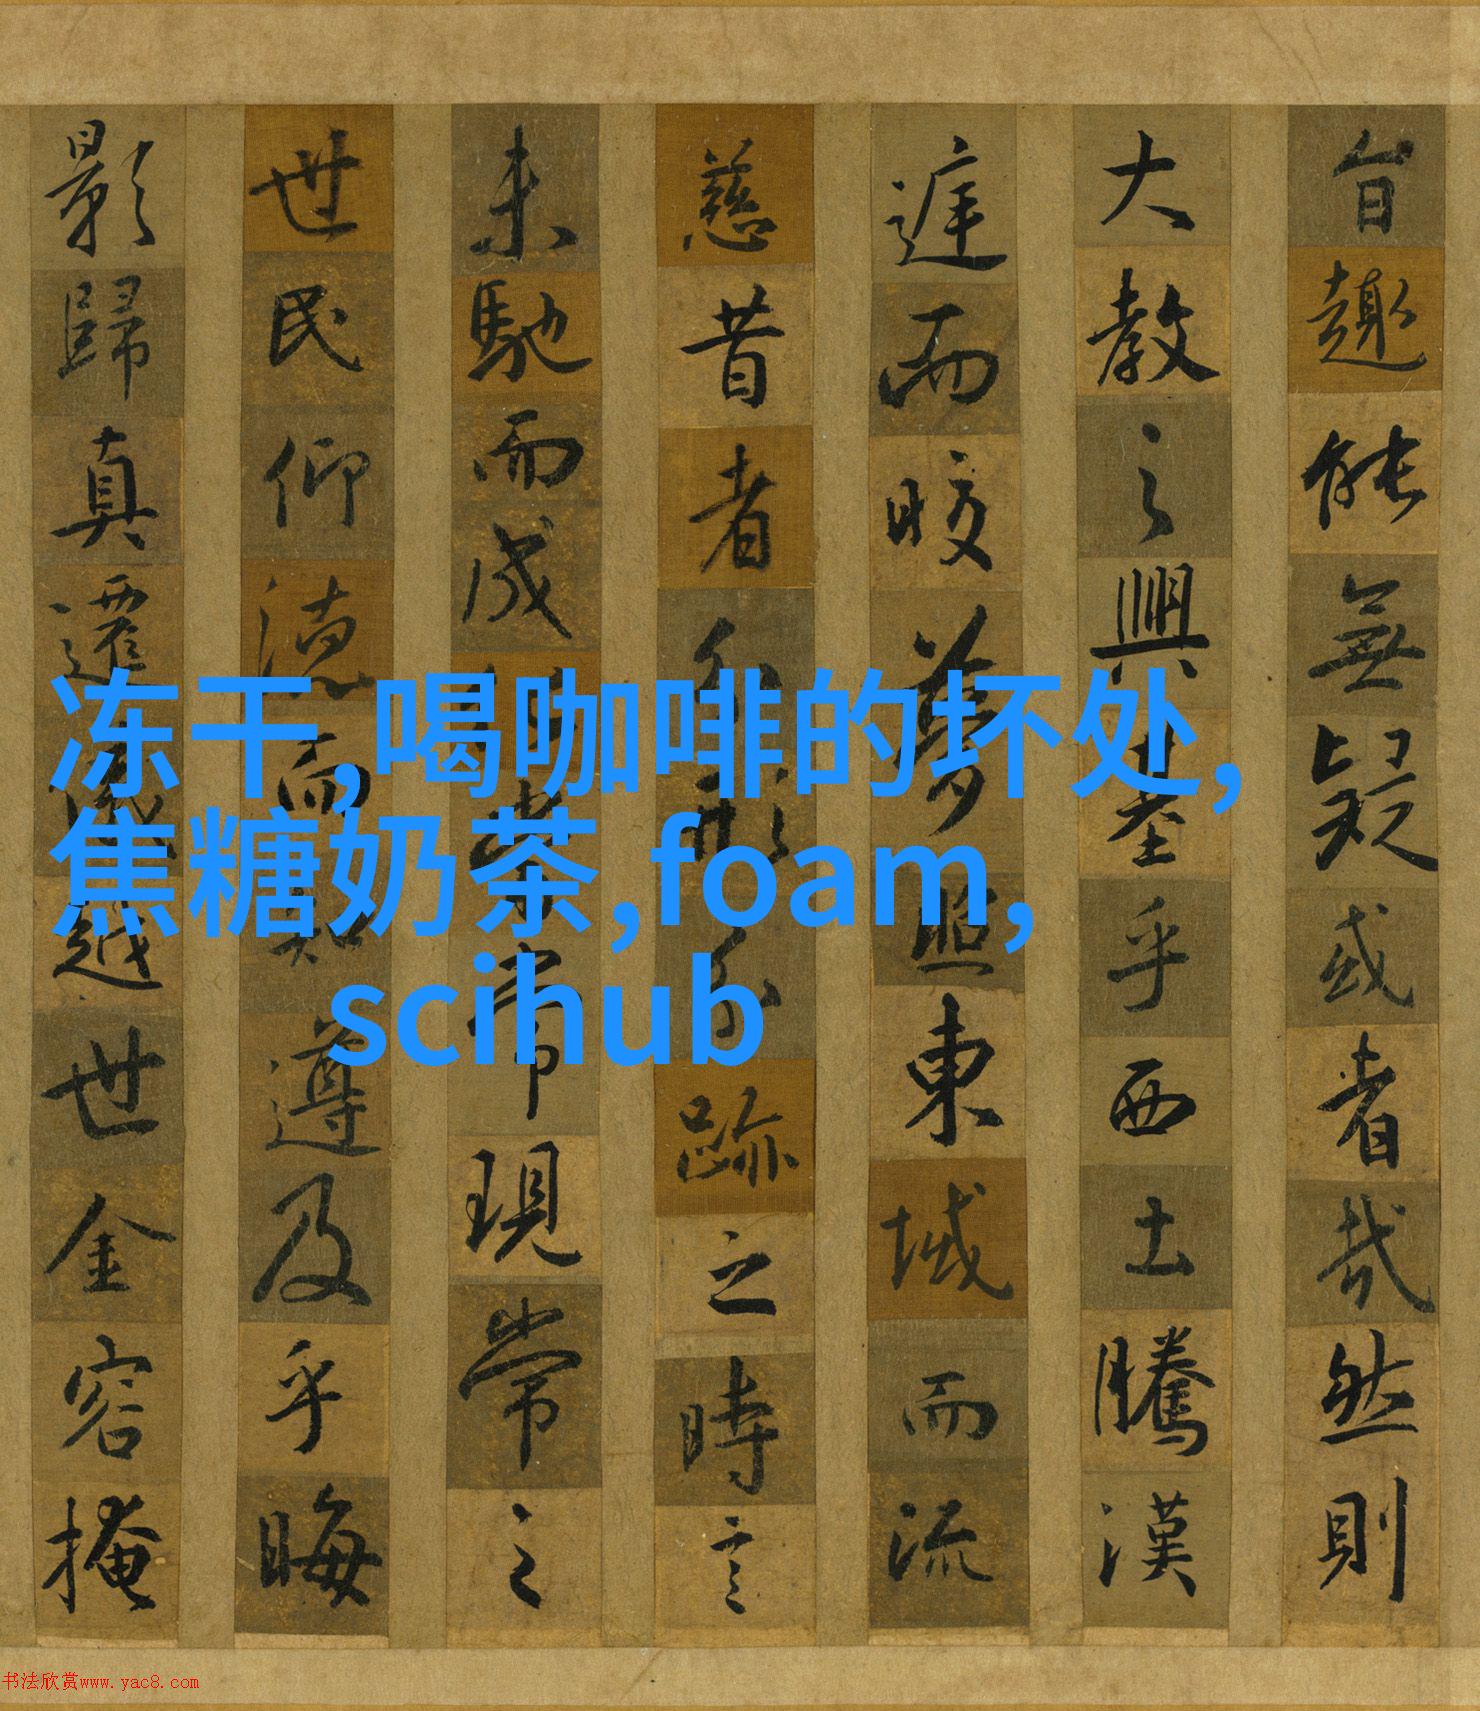 旨趣能無疑或者哉然則
大教之興基乎西土騰漢
庭而皎夢照東域而流
慈昔者分形分跡之時言
未馳而成當常現常之
世民仰德而知遵及乎晦
影歸真遷儀越世金容掩
冻干,喝咖啡的坏处,
焦糖奶茶,foam,
scihub
书法欣赏www.yac8.com